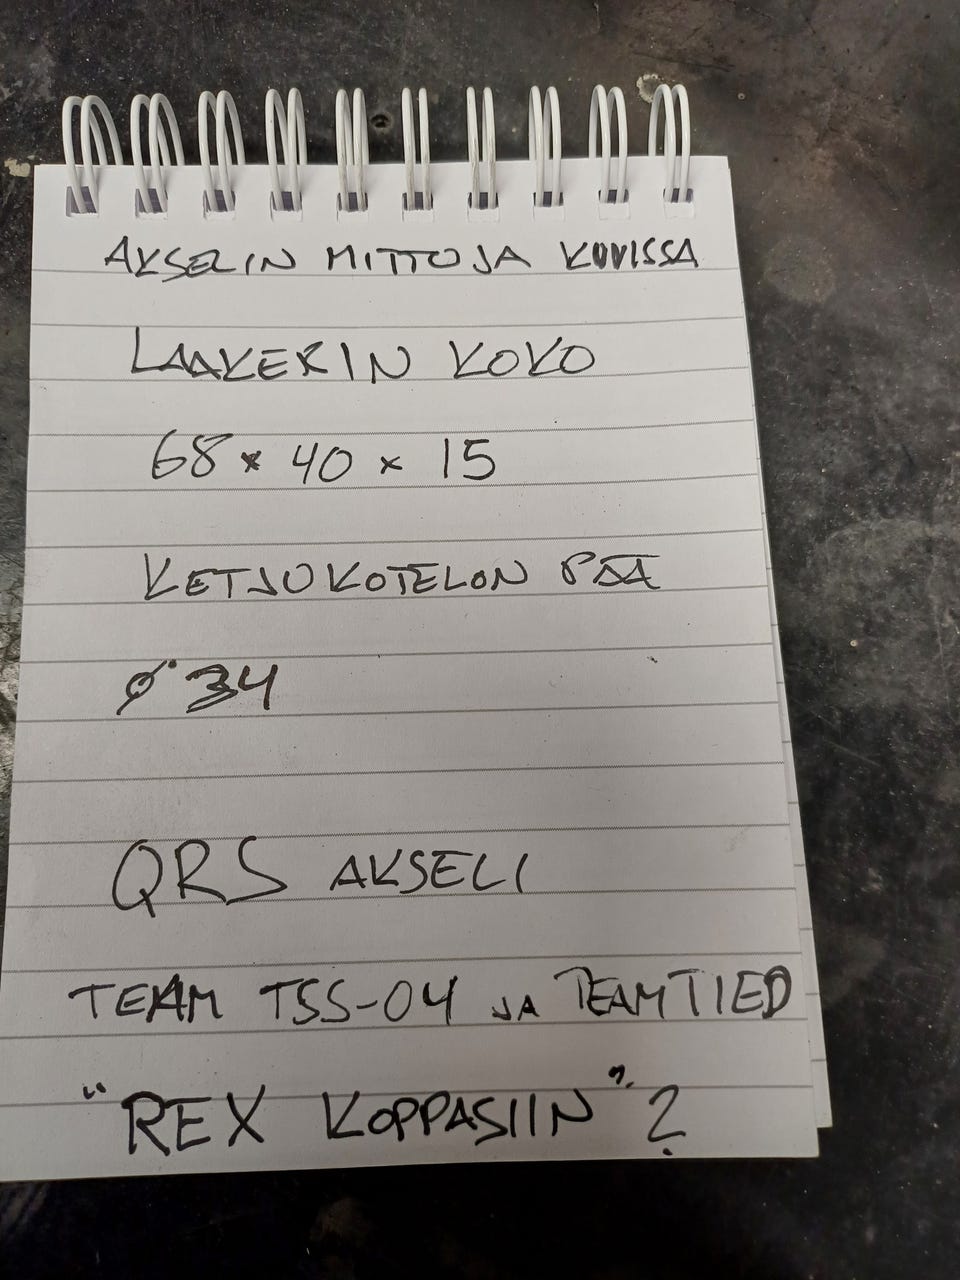 AKSELIN MITTOJA KUVISSA
LAAKERIN KOKO
68 x 40 x 15
KETJUKOTELON PÄÄ
Ø 34
QRS AKSELI
TEAM TSS-04 JA TEAMTIED
"REX KOPPASIIN"?